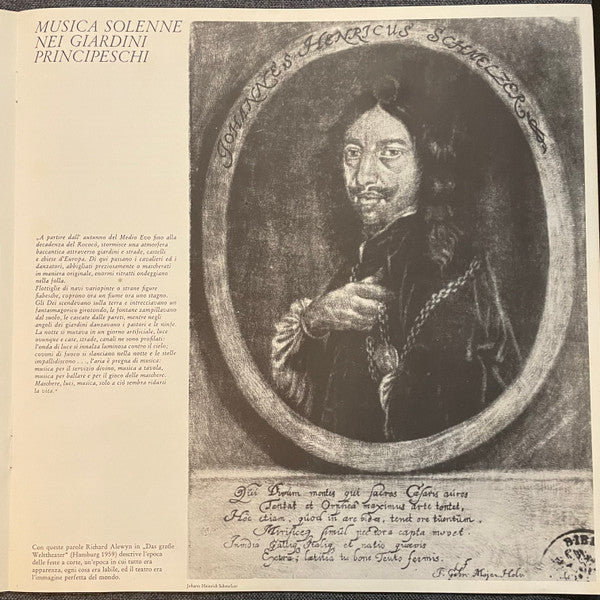 MUSICA SOLENNE
NEI GIARDINI
PRINCIPESCHI
JOHANNES HENRICUS SCHMELZER
„A partire dall' autunno del Medio Evo fino alla
decadenza del Rococò, stormisce una atmosfera
baccantica attraverso giardini e strade, castelli
e chiese d'Europa. Di qui passano i cavalieri ed i
danzatori, abbigliati preziosamente o mascherati
in maniera originale, enormi ritratti ondeggiano
nella folla.
Flottiglie di navi variopinte o strane figure
fiabesche, coprono ora un fiume ora uno stagno.
Gli Dei scendevano sulla terra e intrecciavano un
fantasmagorico girotondo, le fontane zampillavano
dal suolo, le cascate dalle pareti, mentre negli
angoli dei giardini danzavano i pastori e le ninfe.
La notte si mutava in un giorno artificiale, luce
ovunque e case, strade, canali ne sono profilati:
l'onda di luce si innalza luminosa contro il cielo;
covoni di fuoco si slanciano nella notte e le stelle
impallidiscono . . ., l'aria è pregna di musica:
musica per il servizio divino, musica a tavola,
musica per ballare e per il gioco delle maschere.
Maschere, luci, musica, solo a ciò sembra ridursi
la vita."
Con queste parole Richard Alewyn in „Das große
Welttheater" (Hamburg 1959) descrive l'epoca
delle feste a corte, un'epoca in cui tutto era
apparenza, ogni cosa era labile, ed il teatro era
l'immagine perfetta del mondo.
Qui Divum montes qui sacras Cæsaris aures
Tentat et Orphea maximus arte tentet,
Hoc etiam, quod in ære vides, tenet ore
simul pectora capta movet
et natio quævis
lætitia tu bone
Johann Heinrich Schmelzer